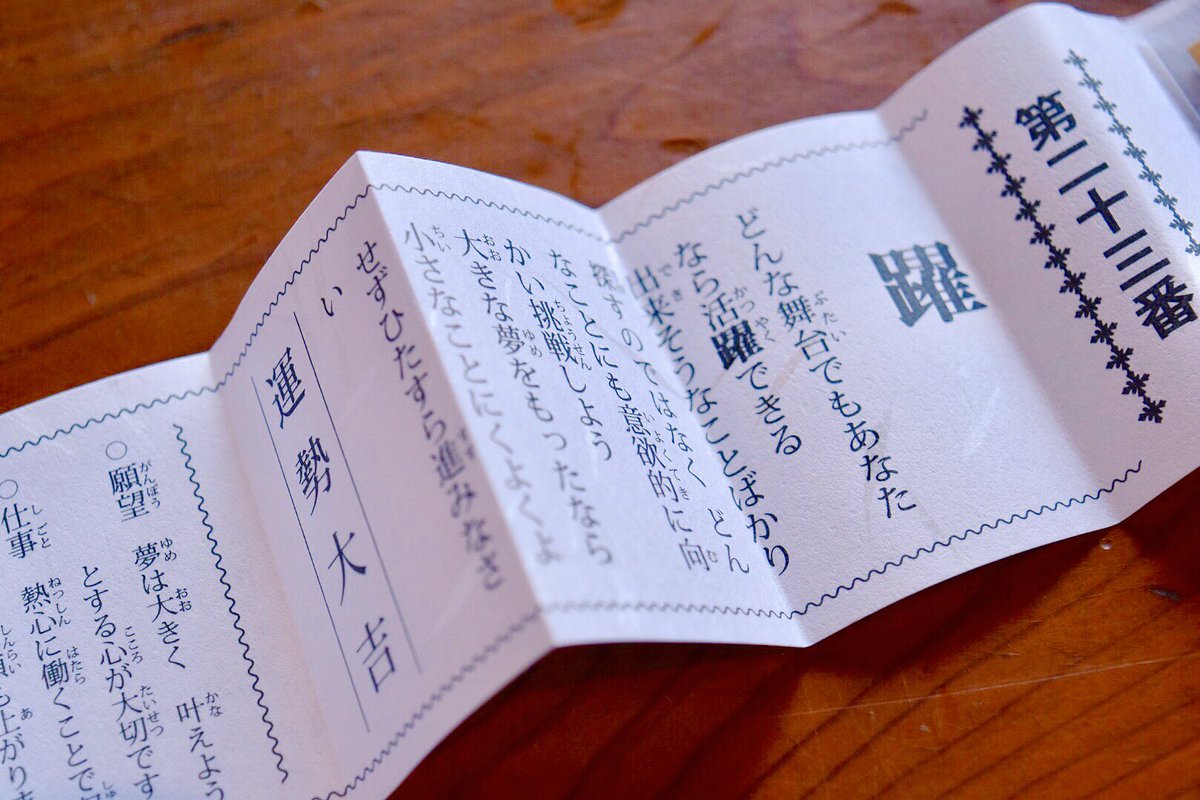 第二十三番
躍
どんな舞台でもあなた
なら活躍できる
出来そうなことばかり
探すのではなく どん
なことにも意欲的に向
かい挑戦しよう
大きな夢をもったなら
小さなことにくよくよ
せずひたすら進みなさ
い
運勢大吉
○願望 夢は大きく 叶えよう
とする心が大切です
○仕事 熱心に働くことで
頼も上がり